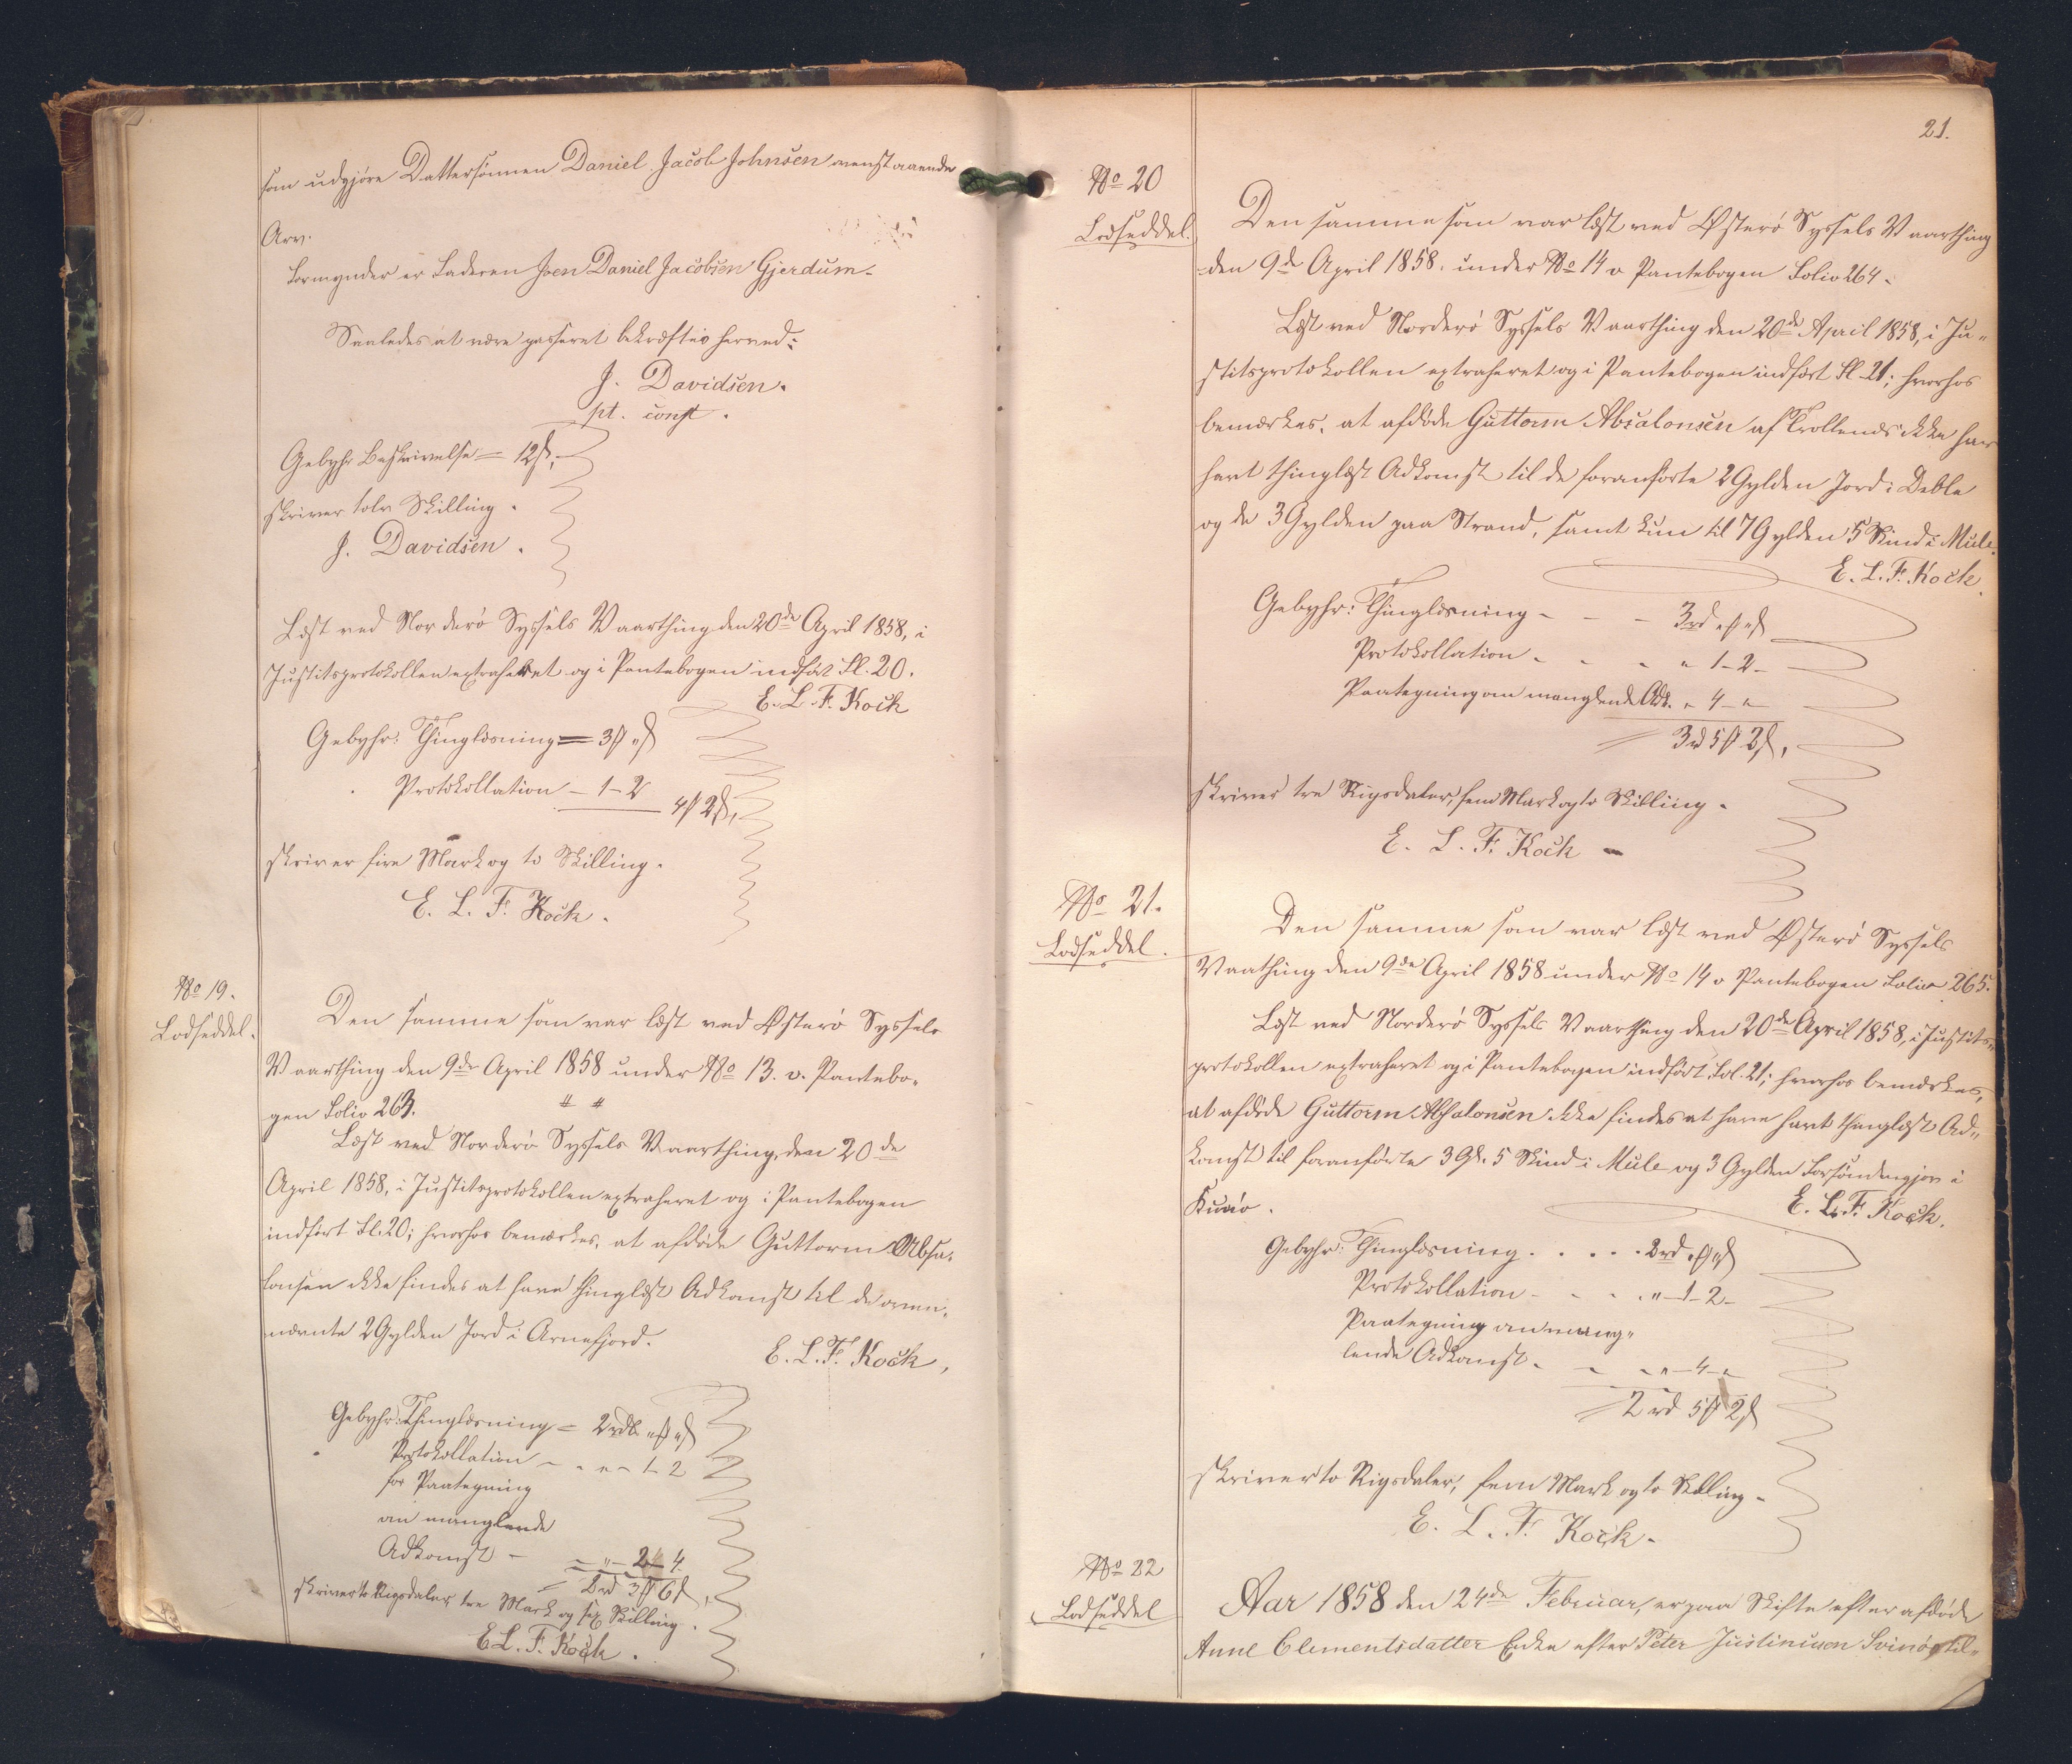 som udgjøre Dattersønnen Daniel Jacob Johnsen ovenstaaende
Arv.
Formynder er Faderen Joen Daniel Jacobsen Gjerdum.
Saaledes at være passeret bekræftes herved:
J. Davidsen.
pt. const.
Gebyhr Beskrivelse = 12ß,
skriver tolv Skilling.
J. Davidsen.
Læst ved Norderø Syssels Vaarthing den 20de April 1858, i
Justitsprotokollen extraheret og i Pantebogen indført Fl. 20.
E. L. F. Koch
Gebyhr: Thinglæsning = 3 „ß
Protokollation – 1–2
4 2ß,
skriver fire Mark og to Skilling.
E. L. F. Koch.
No 19.
Lodseddel.
Den samme som var læst ved Østerø Syssels
Vaarthing den 9de April 1858 under No 13. v. Pantebo-
gen Folio 263.
Læst ved Norderø Syssels Vaarthing, den 20de
April 1858, i Justitsprotokollen extraheret og i Pantebogen
indført Fl. 20; hvorhos bemærkes, at afdøde Guttorm Absa-
lonsen ikke findes at have thinglæst Adkomst til de oven-
nævnte 2 Gylden Jord i Arnefjord.
E. L. F. Koch,
Gebyhr: Thinglæsning = 2 rdl. „ „ß
Protokollation – „ – 1–2
for Paategning
om manglende
Adkomst – – „ – 2– 4.
2 rd 3 6ß,
skriver to Rigsdaler, tre Mark og sex Skilling.
E. L. F. Koch.
21.
No 20
Lodseddel.
Den samme som var læst ved Østerø Syssels Vaarthing
den 9de April 1858. under No 14 v Pantebogen Folio 264.
Læst ved Norderø Syssels Vaarthing den 20de April 1858, i Ju-
stitsprotokollen extraheret og i Pantebogen indført Fl. 21; hvorhos
bemærkes, at afdøde Guttorm Absalonsen af Trollenæs ikke har
havt thinglæst Adkomst til de foranførte 2 Gylden Jord i Deble
og de 3 Gylden paa Strand, samt kun til 7 Gylden 5 Skind i Mule.
E. L. F. Koch.
Gebyhr: Thinglæsning – – – 3 rd „ „ß
Protokollation – – – „ 1–2–
Paategning om manglende Adk. „ 4–„
3 rd 5 2ß,
skriver tre Rigsdaler, fem Mark og to Skilling.
E. L. F. Koch –
No 21.
Lodseddel.
Den samme som var læst ved Østerø Syssels
Vaathing den 9de April 1858 under No 14 v Pantebogen Folio 265.
Læst ved Norderø Syssels Vaarthing den 20de April 1858, i Justits-
protokollen extraheret og i Pantebogen indført Fol. 21; hvorhos bemærkes,
at afdøde Guttorm Absalonsen ikke findes at have havt thinglæst Ad-
komst til foranførte 3 Gl. 5 Skind i Mule og 3 Gylden i
Kunø.
E. L. F. Koch.
Gebyhr: Thinglæsning . . . . . 2 rd „ „ß
Protokollation – – – „–1–2–
Paategning om mang-
lende Adkomst – – „–4–„
2 rd 5 2ß
skriver to Rigsdaler, fem Mark og to Skilling –
E. L. F. Koch.
No 22
Lodseddel
Aar 1858 den 24de Februar, er paa Skifte efter afdøde
Anne Clementsdatter Enke efter Peter Justinusen Svinø, til-